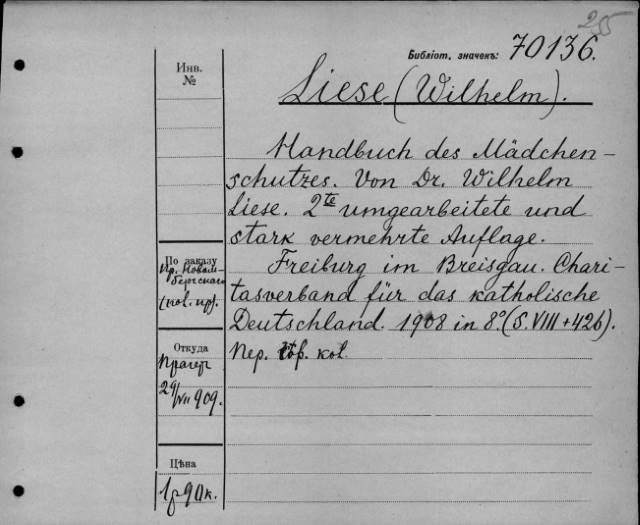 255
Библіот. значекъ: 70136.
Liese (Wilhelm).
Инв.
№
Handbuch des Mädchen-
schutzes. Von Dr. Wilhelm
Liese. 2te umgearbeitete und
stark vermehrte Auflage.
Freiburg im Breisgau. Chari-
tasverband für das katholische
Deutschland. 1908 in 8° (S. VIII+426).
Пер. кол.
По заказу
Пр.
Откуда
Прагеръ
29/VII 909.
Цѣна
1 р 90 к.